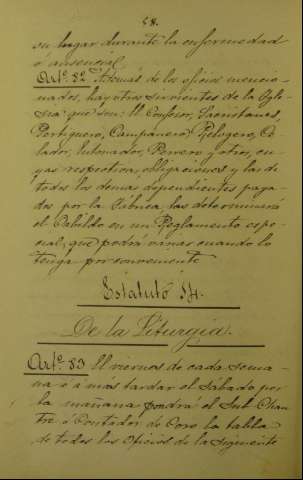 58.
su lugar durante la enfermedad
ó ausencia.
Artº. 82. Además de los oficios mencio-
nados, hay otros sirvientes de la Igle-
sia: que son: El Confesor, Sacristanes,
Pertiguero, Campanero, Relojero, Ce-
lador, Entonador, Perrero y otros, cu-
yas respectivas obligaciones y las de
todos los demas dependientes paga-
dos por la Fábrica, las determinará
el Cabildo en un Reglamento espe-
cial, que podrá variar cuando lo
tenga por conveniente.
Estatuto 14.
De la Liturgia.
Artº. 83 El viernes de cada sema-
na ó á mas tardar el Sábado por
la mañana pondrá el Sub-Chan-
tre ó Contador de Coro la tabla
de todos los Oficios de la siguiente